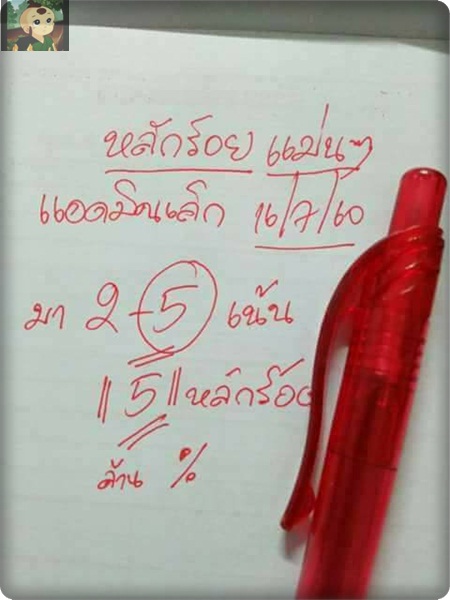 หลักร้อย แม่นๆ
แอดมินเล็ก 16/7/60
มา 2-5 เน้น
|| 5 || หลักร้อย
ล้าน %